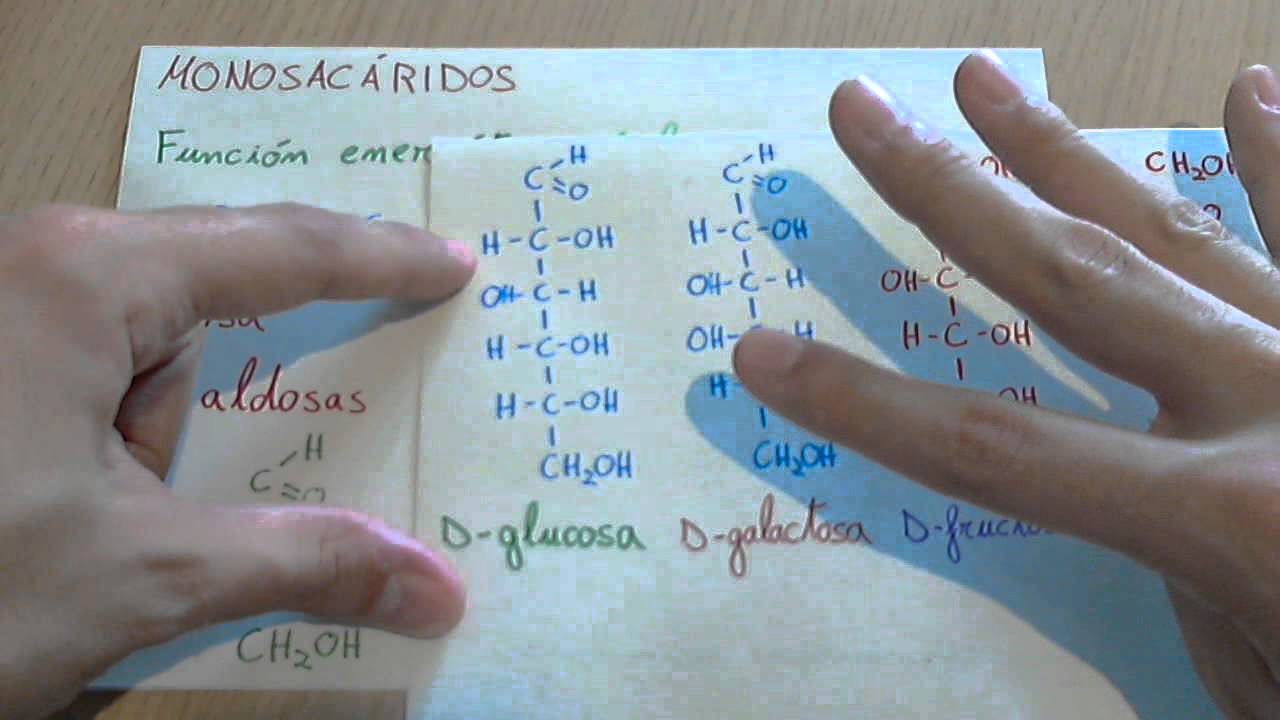 MONOSACÁRIDOS
Función
aldosas
H
C
CH₂OH
H
C=O
H-C-OH
OH-C-H
H-C-OH
H-C-OH
CH₂OH
D-glucosa
H
C=O
H-C-OH
OH-C-H
OH- H
H
CH₂OH
D-galactosa
OH-C-
H-C-OH
OH
CH₂OH